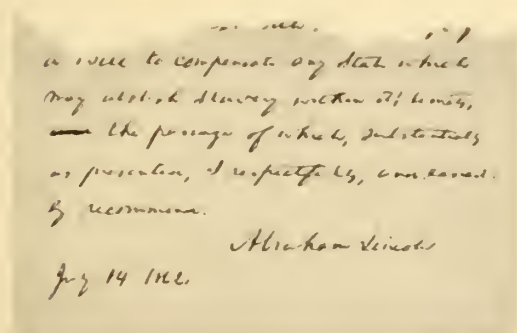 a bill to compensate any State which
may abolish slavery within its limits,
the passage of which, substantially
as presented, I respectfully, and earnest-
ly recommend.
Abraham Lincoln
July 14 1862.